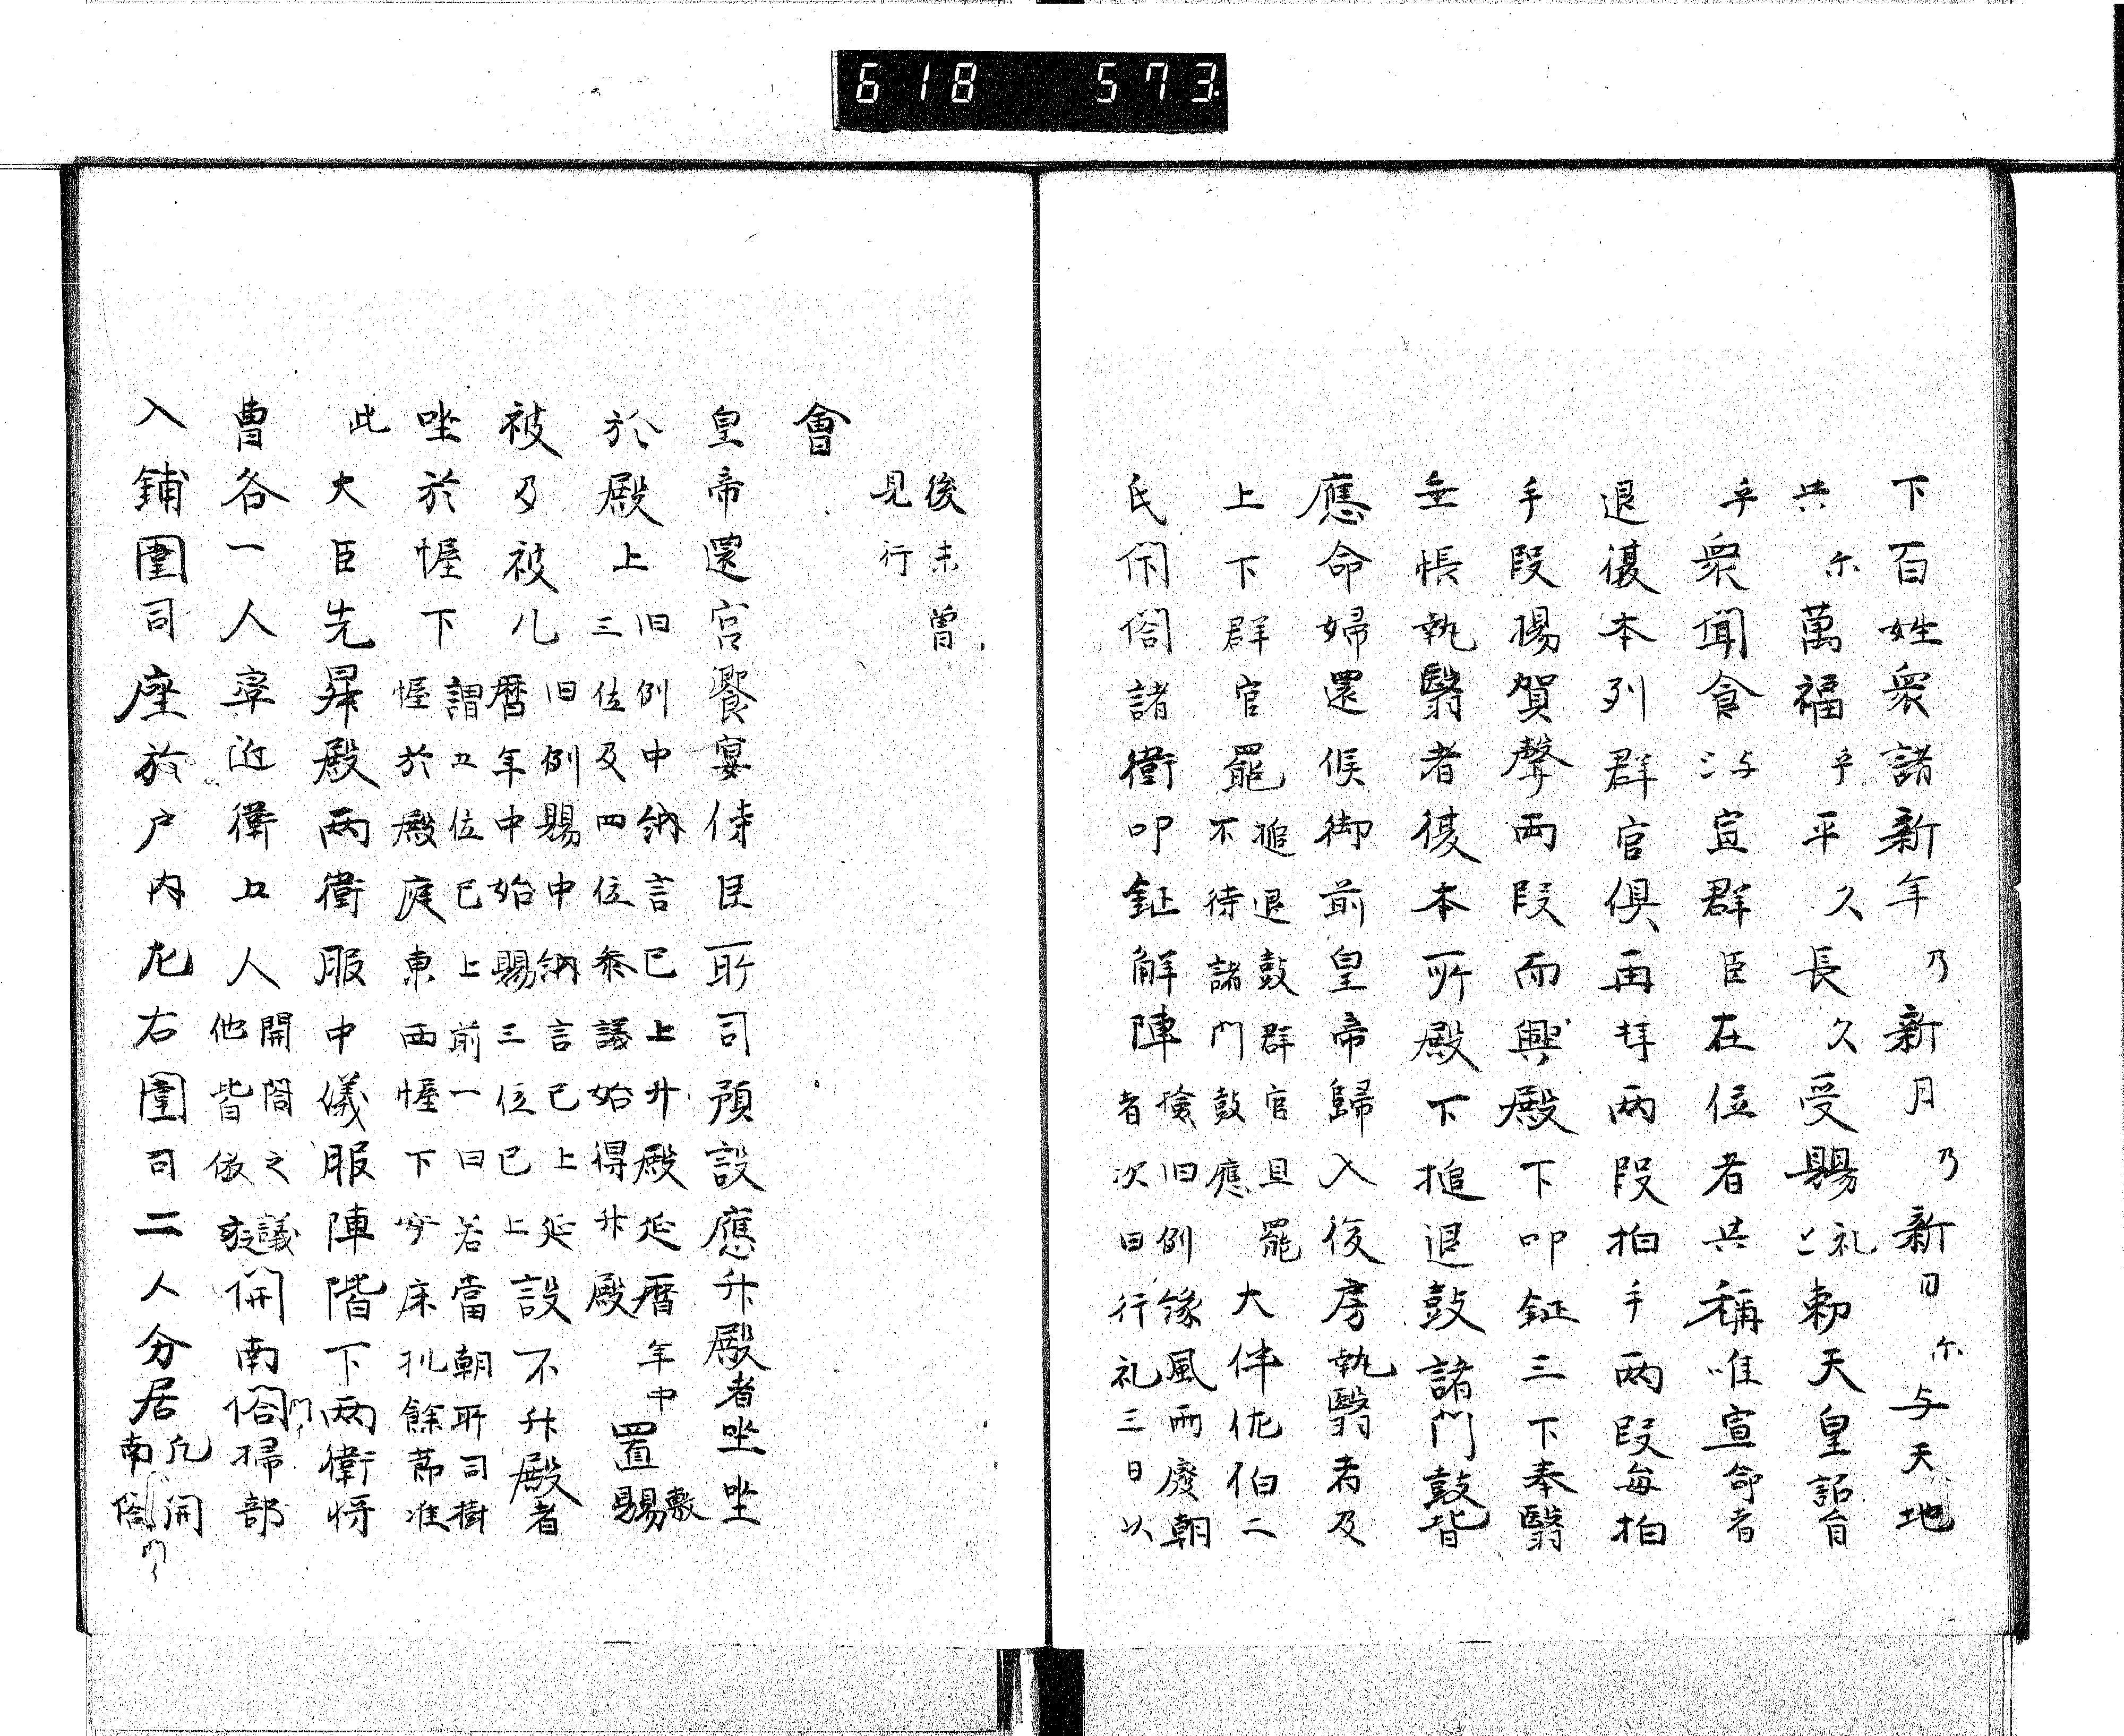 618 573.
下百姓衆諸新年乃新月乃新日尓与天地
共尓萬福乎平久長久受賜礼止勅天皇詔旨
乎衆聞食止与宣群臣在位者共称唯宣命者
退復本列群官俱再拝両段拍手両段毎拍
手段揚賀聲両段而興殿下叩鉦三下奉翳
垂帳執翳者復本所殿下搥退鼓諸門鼓皆
應命婦還候御前皇帝歸入後房執翳者及
上下群官罷搥退鼓群官且罷不待諸門鼓應大伴佐伯二
氏閇閤諸衛叩鉦解陣撿旧例縁風雨廢朝者次日行礼三日以
後未曽見行
會
皇帝還宮饗宴侍臣所司預設應升殿者坐坐
於殿上旧例中納言已上升殿延暦年中三位及四位参議始得升殿置賜敷
被及被几旧例賜中納言已上延暦年中始賜三位已上設不升殿者
坐於幄下謂五位已上前一日若當朝所司樹幄於殿庭東西幄下安床机餘莭准
此大臣先昇殿両衛服中儀服陣階下両衛将
曹各一人率近衛五人開閤之議他皆倣之開南閤門掃部
入鋪闈司座於戸内左右闈司二人分居凡開南閤門